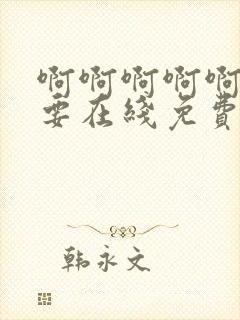 啊啊啊啊啊
要在綫免費
韩永文